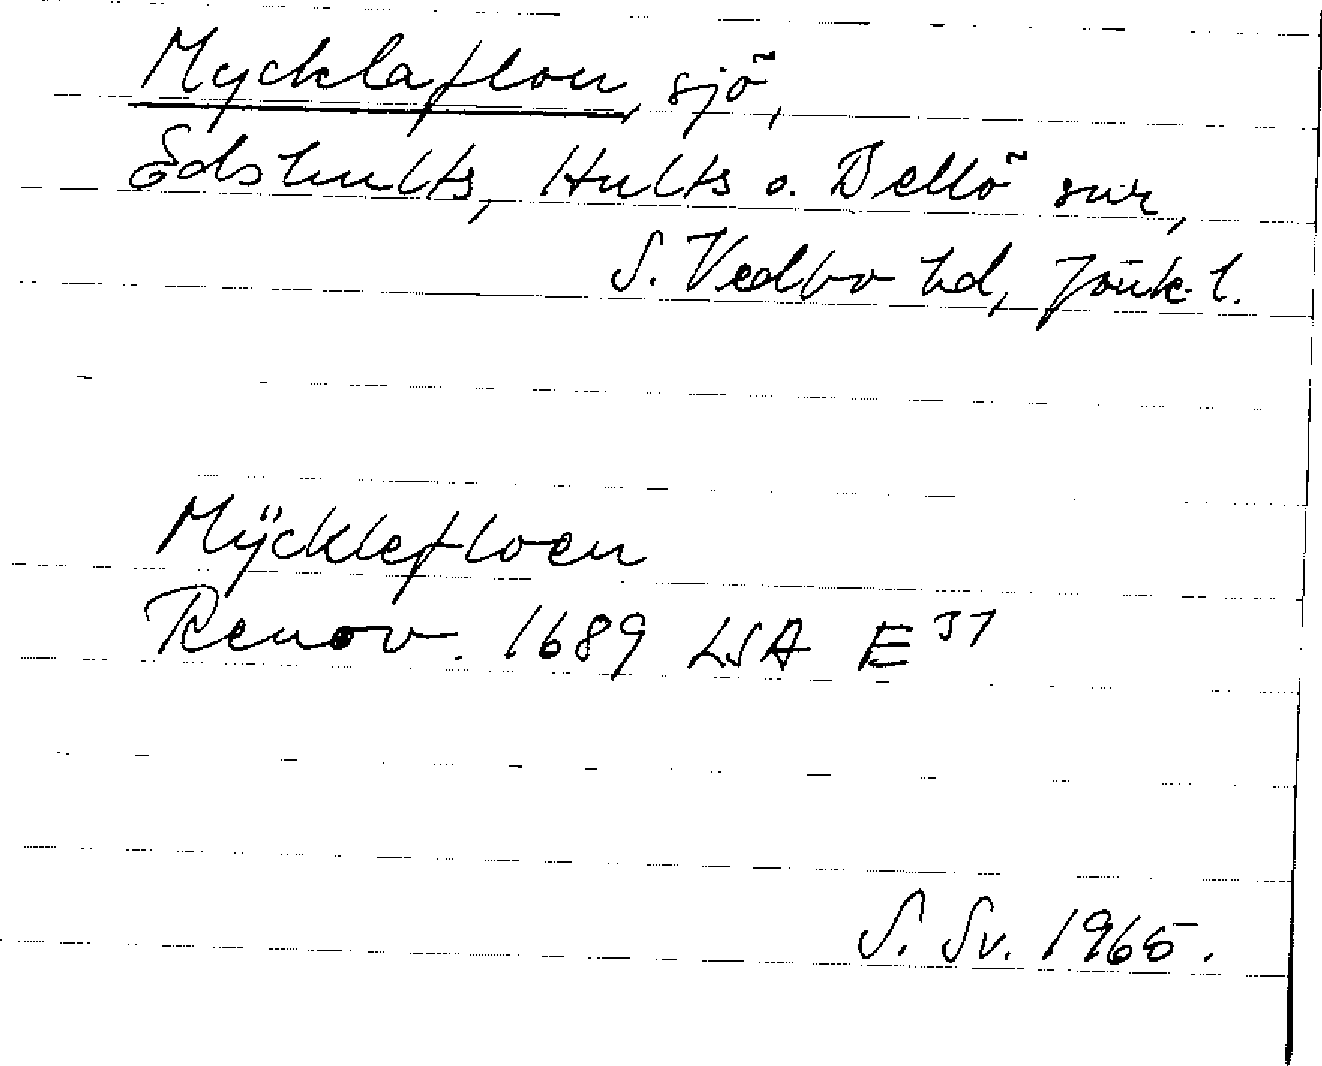 Mycklaflon, sjö,
Edshults, Hults o. Bellö snr,
S. Vedbo hd, Jönk. l.
Mÿcklefloen
Renov. 1689 LSA E 37
S. Sv. 1965.